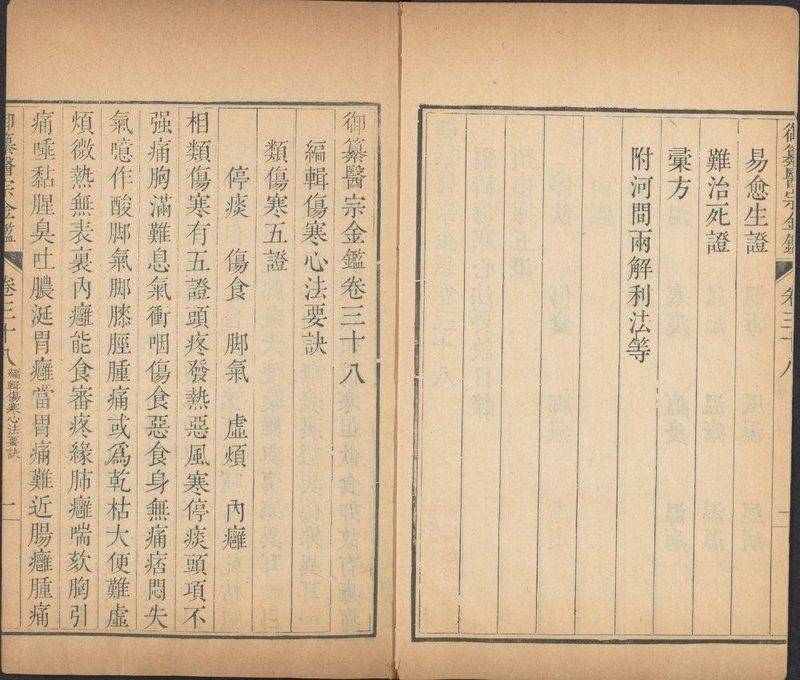 御纂醫宗金鑑
卷三十八
易愈生證
難治死證
彙方
附河間兩解利法等
御纂醫宗金鑑卷三十八
編輯傷寒心法要訣
類傷寒五證
停痰 傷食 腳氣 虛煩 內癰
相類傷寒有五證頭疼發熱惡風寒停痰頭項不
强痛胸滿難息氣衝咽傷食惡食身無痛痞悶失
氣噫作酸腳氣腳膝脛腫痛或爲乾枯大便難虛
煩微熱無表裏內癰能食審疼緣肺癰喘欬胸引
痛唾黏腥臭吐膿涎胃癰當胃痛難近腸癰腫痛
御纂醫宗金鑑
卷三十八 編輯傷寒心法要訣 一